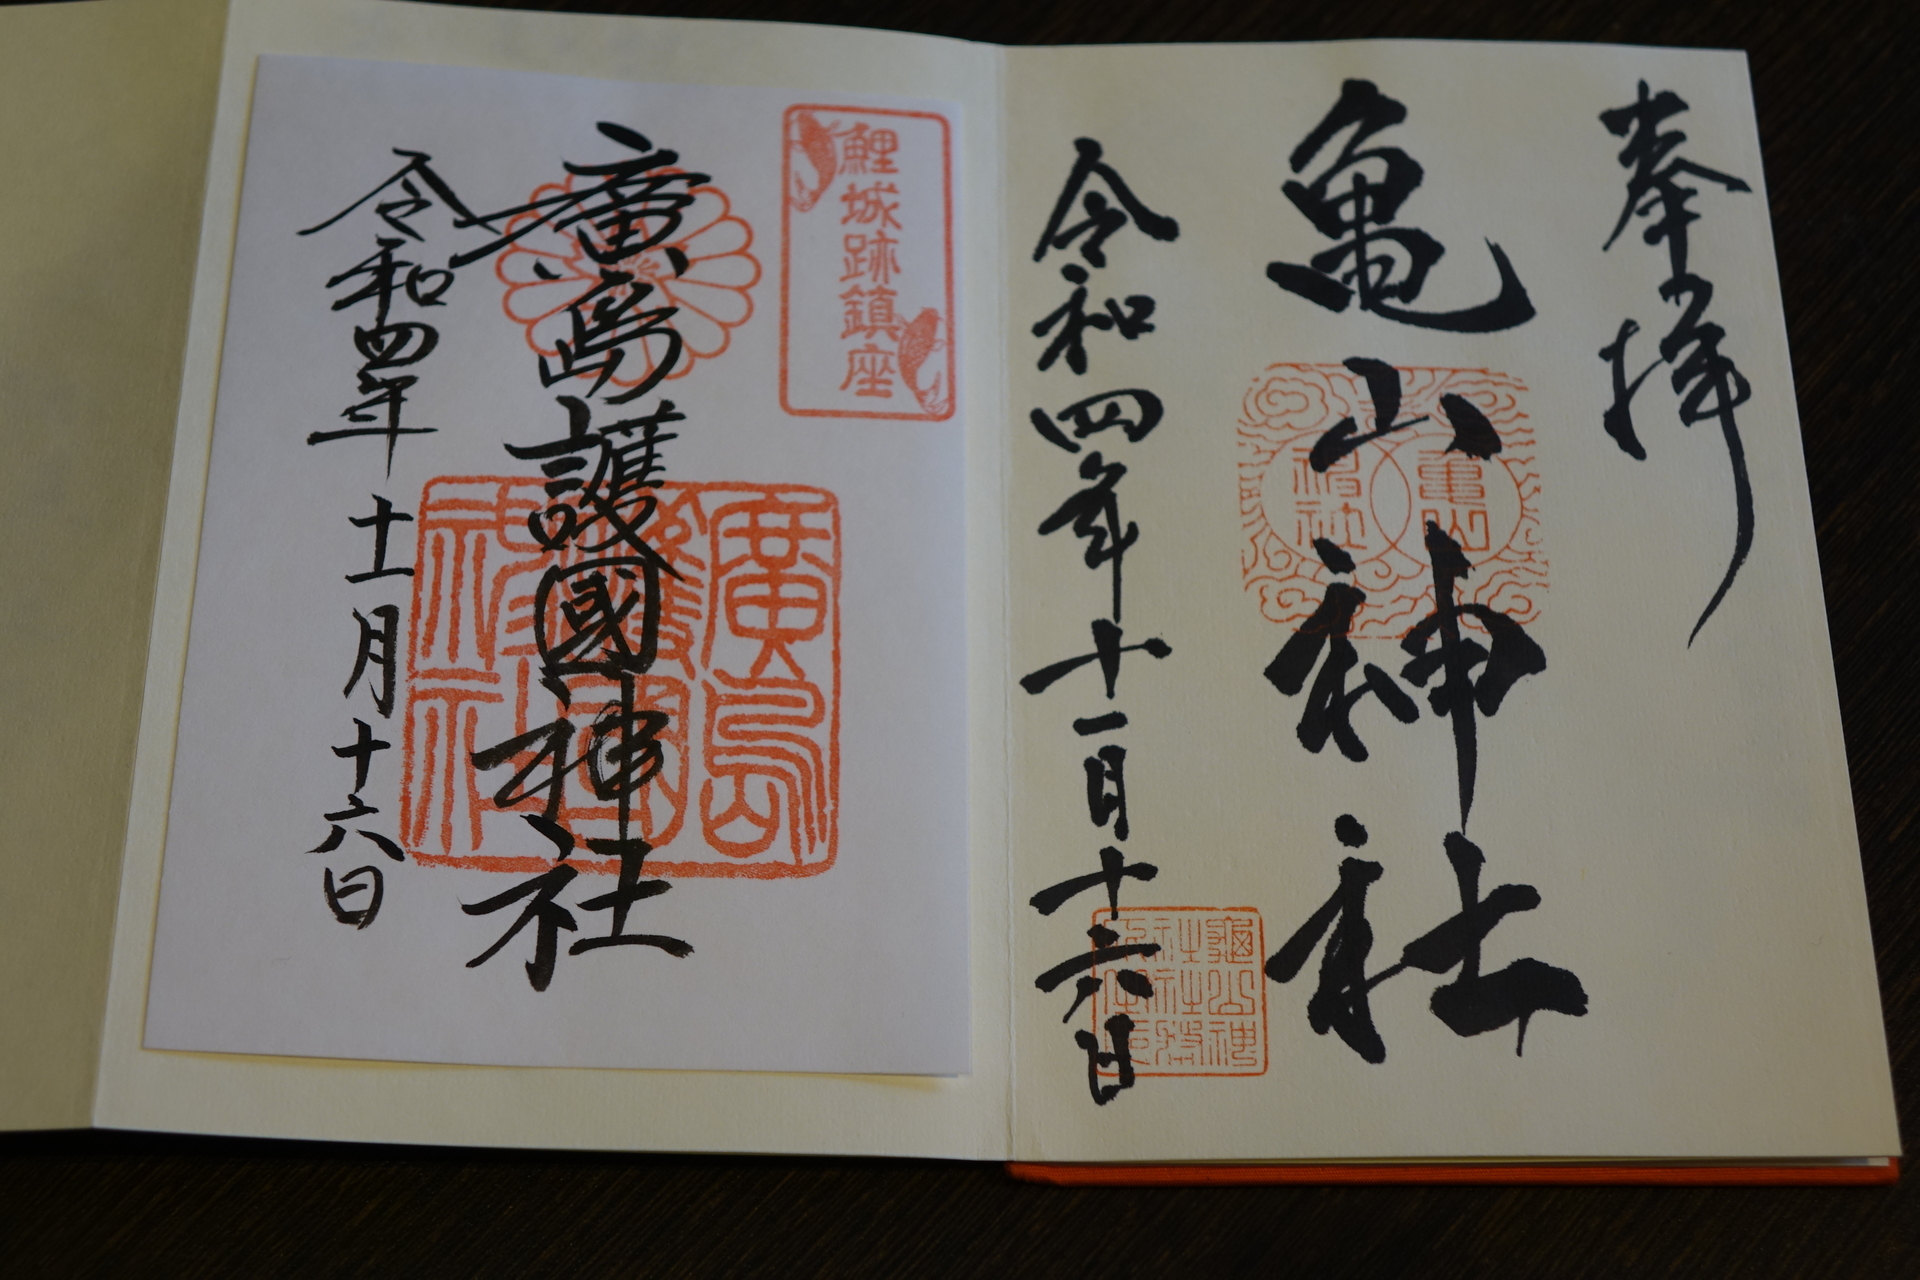 奉拝
亀山神社
亀山
神社
令和四年十一月十六日
鯉城跡鎮座
廣島護國神社
廣島
護國
神社
令和四年十一月十六日